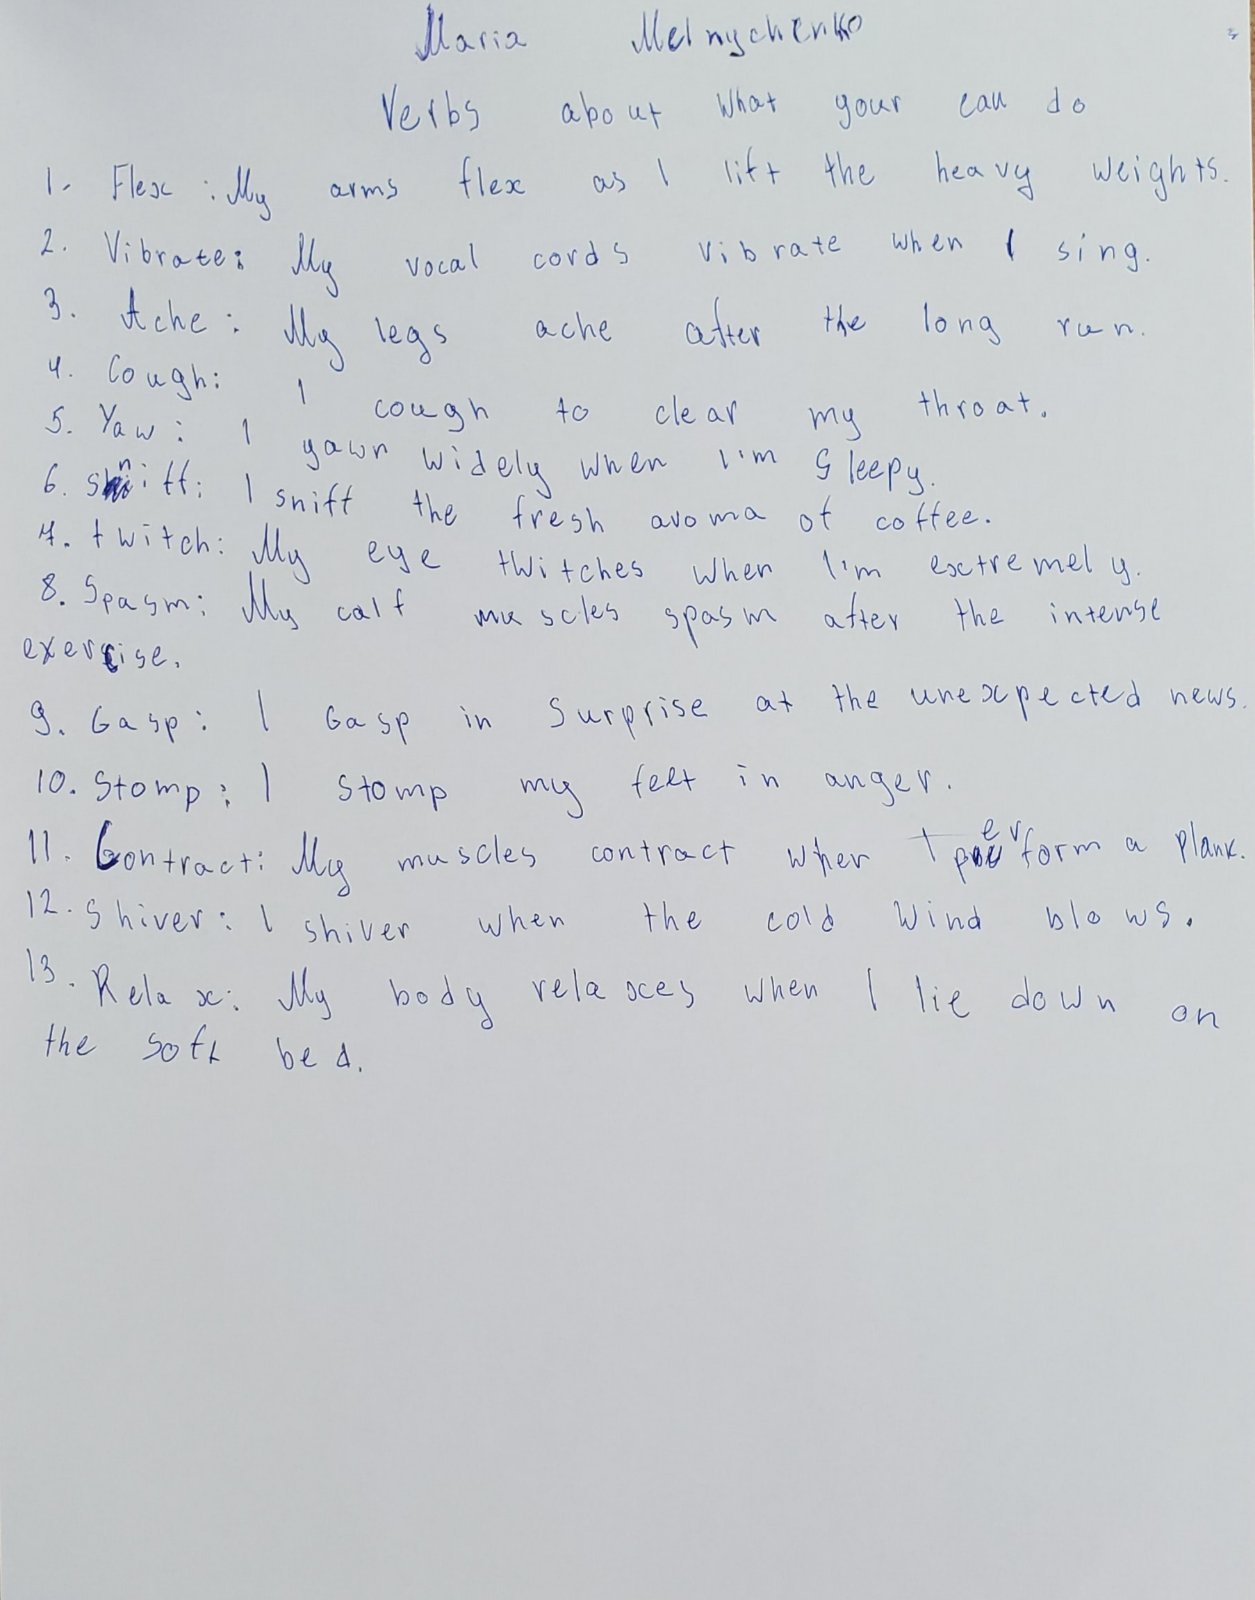 Maria Melnychenko
Verbs about what your can do
1. Flex: My arms flex as I lift the heavy weights.
2. Vibrate: My vocal cords vibrate when I sing.
3. Ache: My legs ache after the long run.
4. Cough: I cough to clear my throat.
5. Yaw: I yawn widely when I'm sleepy.
6. sniff: I sniff the fresh aroma of coffee.
7. twitch: My eye twitches when I'm extremely.
8. Spasm: My calf muscles spasm after the intense
exercise.
9. Gasp: I Gasp in surprise at the unexpected news.
10. Stomp: I stomp my feet in anger.
11. Contract: My muscles contract when I perform a plank.
12. Shiver: I shiver when the cold wind blows.
13. Relax: My body relaxes when I lie down on
the soft bed.